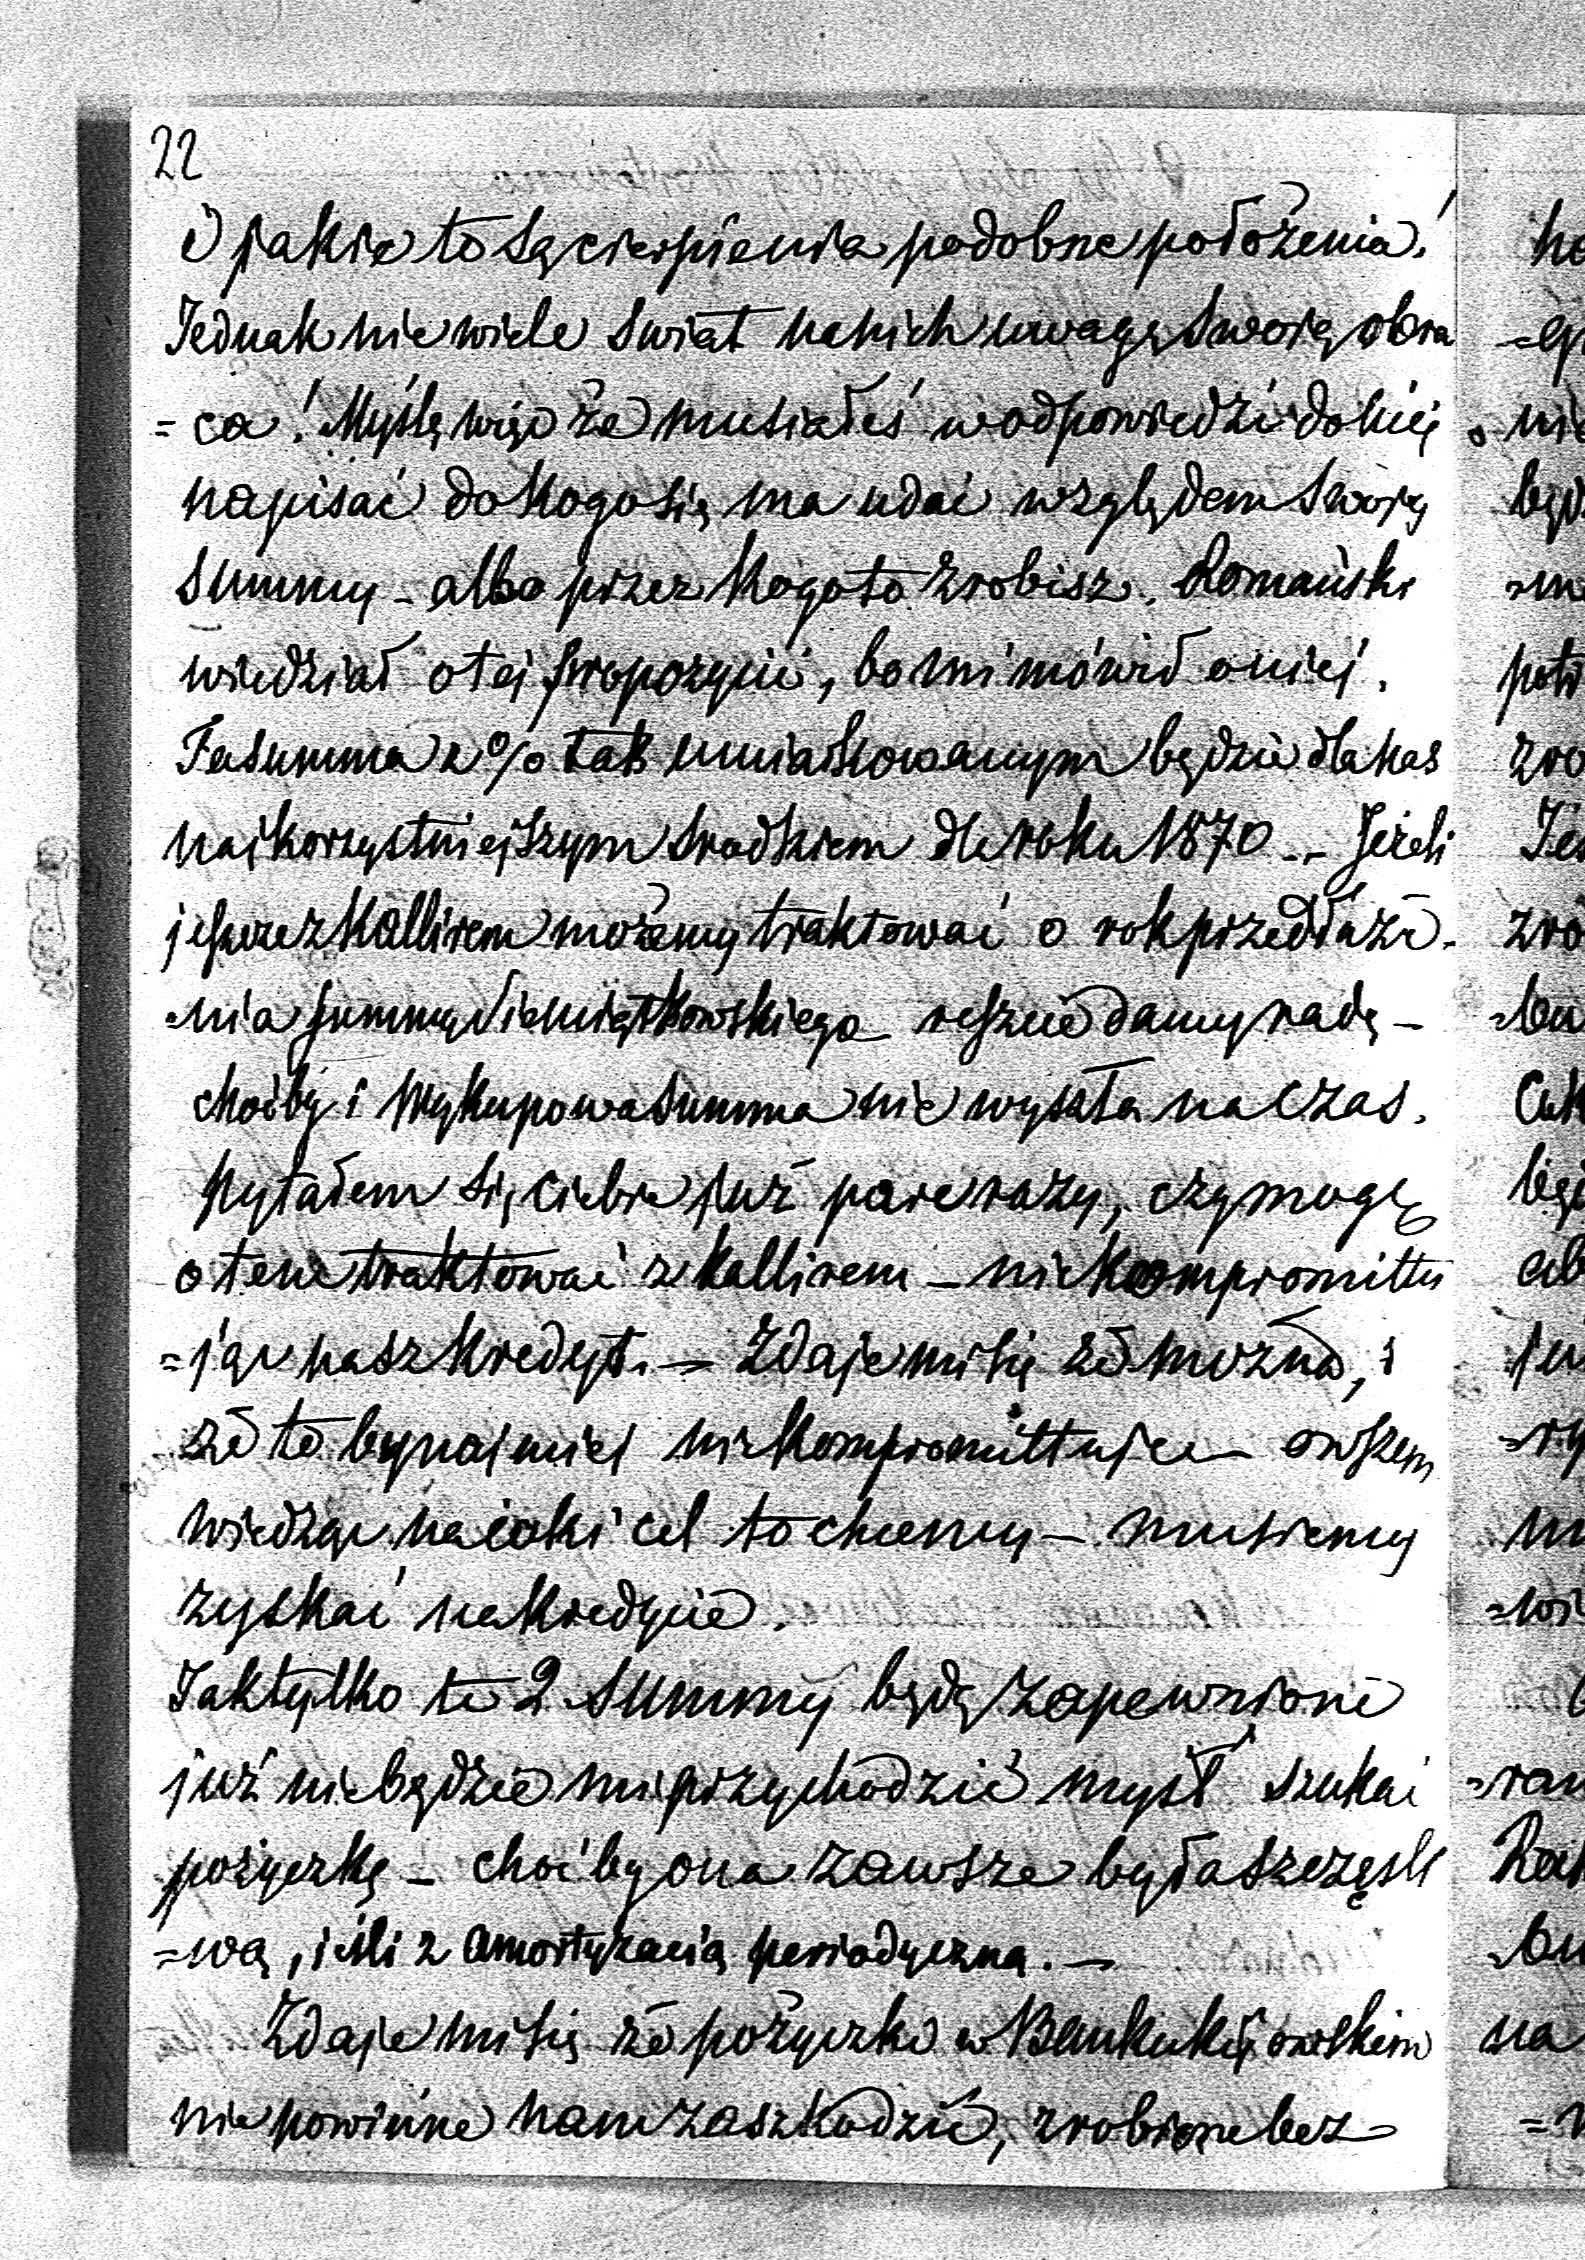 22
O jakie to są cierpienia podobne położenia!
Jednak nie wiele świat na nich uwagę swoję obra
=ca! Myślę więc że musiałeś w odpowiedzi do niej
napisać do kogo się ma udać względem swojej
summy – albo przez kogo to zrobisz. Romański
wiedział o tej propozycii, bo mi mówił o niej.
Ta summa z % tak umiarkowanym będzie dla nas
najkorzystniejszym środkiem dla roku 1870 -- Jeżeli
jeszcze z Kallirem możemy traktować o rok przedłuże
=nia summy Siemiątkowskiego reszcie damy radę –
choćby i wykupowa summa nie wyszła na czas.
Pytałem się ciebie już parę razy, czy mogę
o tem traktować z Kallirem – nie kompromittu
=jąc nasz kredyt. — Zdaje mi się że można, i
że to bynajmiej nie kompromittuje – owszem
wiedząc na iaki cel to chcemy – musiemy
zyskać na kredycie.
Jak tylko te 2 summy będą zapewnione
już nie będzie mi przychodzić myśl szukać
pożyczkę – choćby ona zawsze była szczęśli
=wą, ieśli z amortyzacią periodyczną. —
Zdaje mi się że pożyczka w Banku kijowskim
nie powinna nam zaszkodzić, zrobione bez